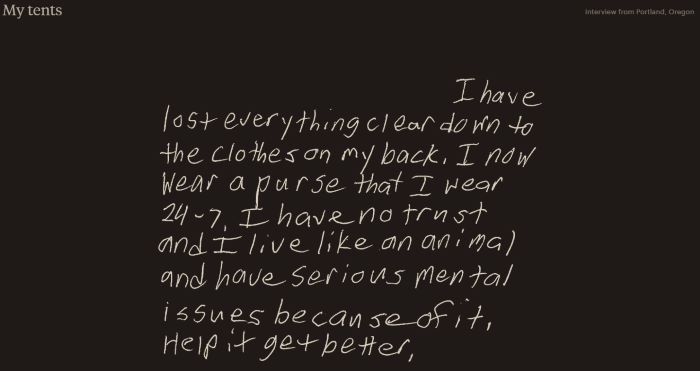 My tents
Interview from Portland, Oregon
I have
lost everything clear down to
the clothes on my back. I now
wear a purse that I wear
24-7. I have no trust
and I live like an animal
and have serious mental
issues because of it.
Help it get better.